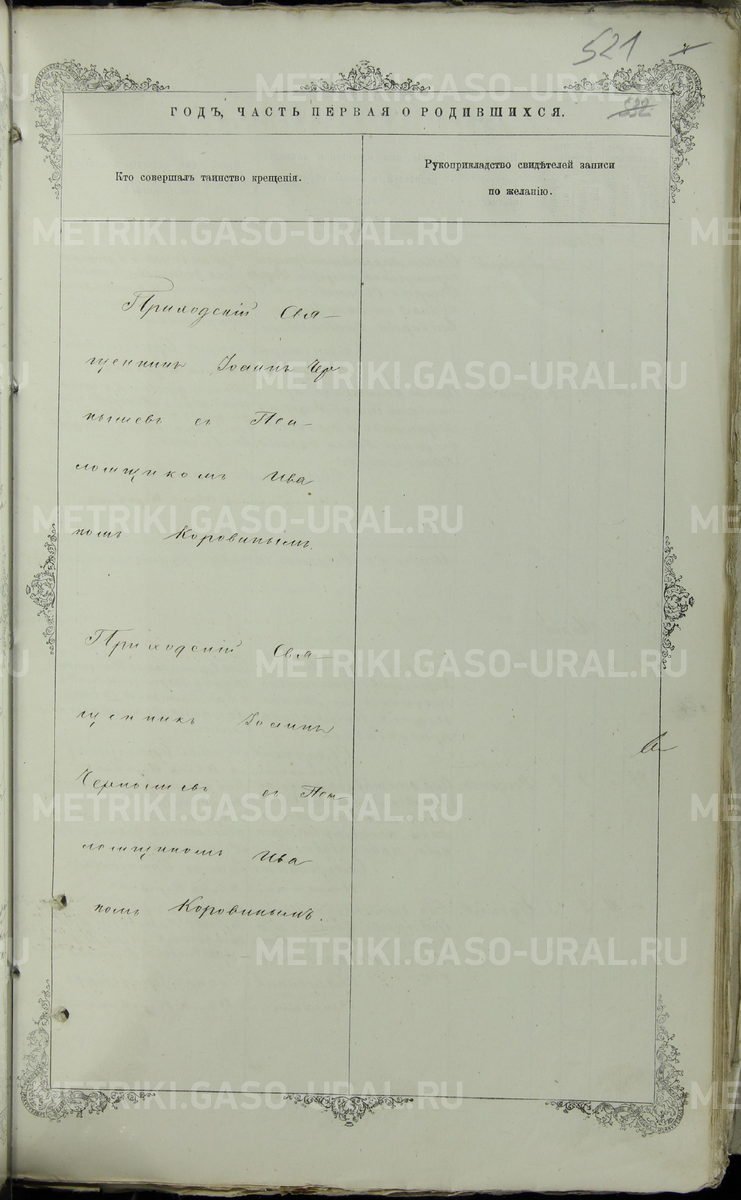 521
532
ГОДЪ, ЧАСТЬ ПЕРВАЯ О РОДИВШИХСЯ.
Кто совершалъ таинство крещенія.
Рукоприкладство свидѣтелей записи
по желанію.
Приходскій Свя-
щенникъ Іоаннъ Чер
нышевъ съ Пса-
ломщикомъ Ива
номъ Коровинымъ.
Приходскій Свя-
щенникъ Іоаннъ
Чернышевъ съ Пса-
ломщикомъ Ива
номъ Коровинымъ.
METRIKI.GASO-URAL.RU